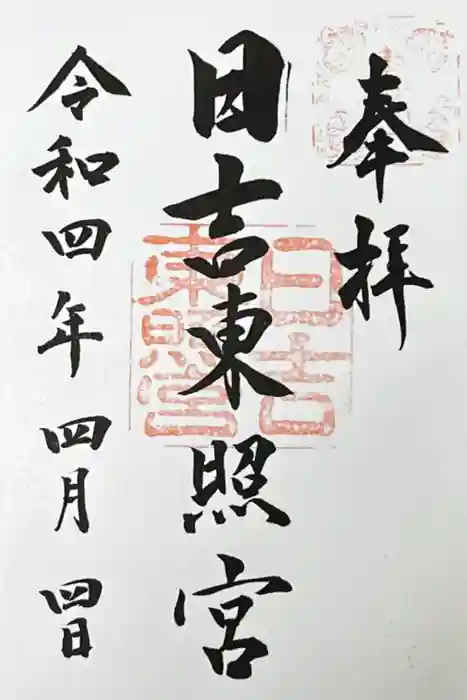 奉拝
日吉東照宮
日吉
東照宮
令和四年 四月 四日